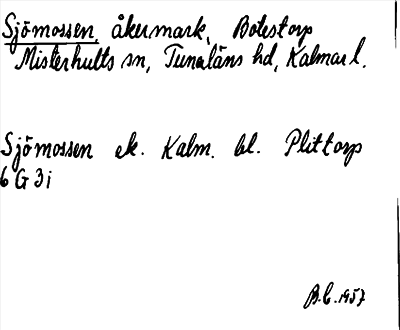 Sjömossen, åkermark, Botestorp
Misterhults sn, Tunaläns hd, Kalmar l.
Sjömossen ek. Kalm. bl. Plittorp
6 G 3 i
B.C. 1957